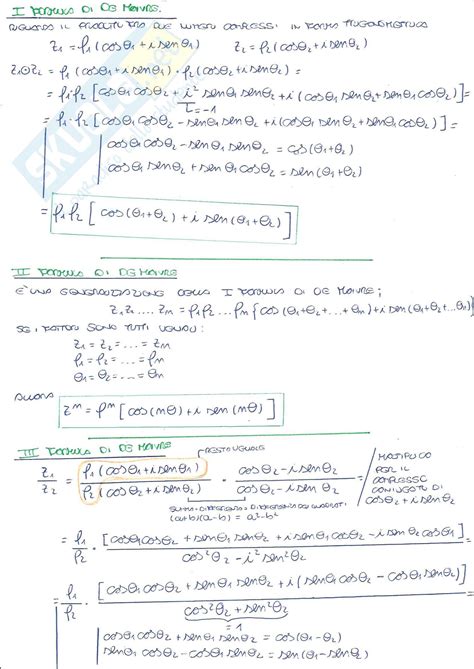 I FORMULA DI DE MOIVRE.
RIGUARDA IL PRODOTTO TRA DUE NUMERI COMPLESSI IN FORMA TRIGONOMETRICA
z₁ = ρ₁(cosθ₁+i senθ₁) z₂ = ρ₂(cosθ₂+i senθ₂)
z₁⊙z₂ = ρ₁(cosθ₁+i senθ₁)·ρ₂(cosθ₂+i senθ₂) =
= ρ₁ρ₂[cosθ₁cosθ₂ + i² senθ₁senθ₂ + i(cosθ₁senθ₂+senθ₁cosθ₂)] =
= -1
= ρ₁·ρ₂[cosθ₁cosθ₂ - senθ₁senθ₂ + i(cosθ₁senθ₂+senθ₁cosθ₂)] =
cosθ₁cosθ₂ - senθ₁senθ₂ = cos(θ₁+θ₂)
cosθ₁senθ₂ + senθ₁cosθ₂ = sen(θ₁+θ₂)
= ρ₁ρ₂[cos(θ₁+θ₂) + i sen(θ₁+θ₂)]
II FORMULA DI DE MOIVRE
È UNA GENERALIZZAZIONE DELLA I FORMULA DI DE MOIVRE;
z₁z₂....zₘ = ρ₁ρ₂...ρₘ{cos(θ₁+θ₂+...+θₘ)+i sen(θ₁+θ₂+...θₘ)}
SE I FATTORI SONO TUTTI UGUALI:
z₁ = z₂ = ... = zₘ
ρ₁ = ρ₂ = ... = ρₘ
θ₁ = θ₂ = ... = θₘ
ALLORA
zᵐ = ρᵐ[cos(mθ) + i sen(mθ)]
III FORMULA DI DE MOIVRE
RESTO UGUALE
z₁/z₂ = ρ₁(cosθ₁+i senθ₁)/ρ₂(cosθ₂+i senθ₂) · cosθ₂-i senθ₂/cosθ₂-i senθ₂ =
MOLTIPLICO
PER IL
COMPLESSO
CONIUGATO DI
cosθ₂+i senθ₂
(a+b)(a-b) = a²-b²
= ρ₁/ρ₂ · [cosθ₁cosθ₂ + senθ₁senθ₂ + i senθ₁cosθ₂ - i senθ₂cosθ₁]/cos²θ₂ - i² sen²θ₂ =
= ρ₁/ρ₂ · [cosθ₁cosθ₂ + senθ₁senθ₂ + i(senθ₁cosθ₂ - cosθ₁senθ₂)]/cos²θ₂ + sen²θ₂ =
= 1
cosθ₁cosθ₂ + senθ₁senθ₂ = cos(θ₁-θ₂)
senθ₁cosθ₂ - cosθ₁senθ₂ = sen(θ₁-senθ₂)